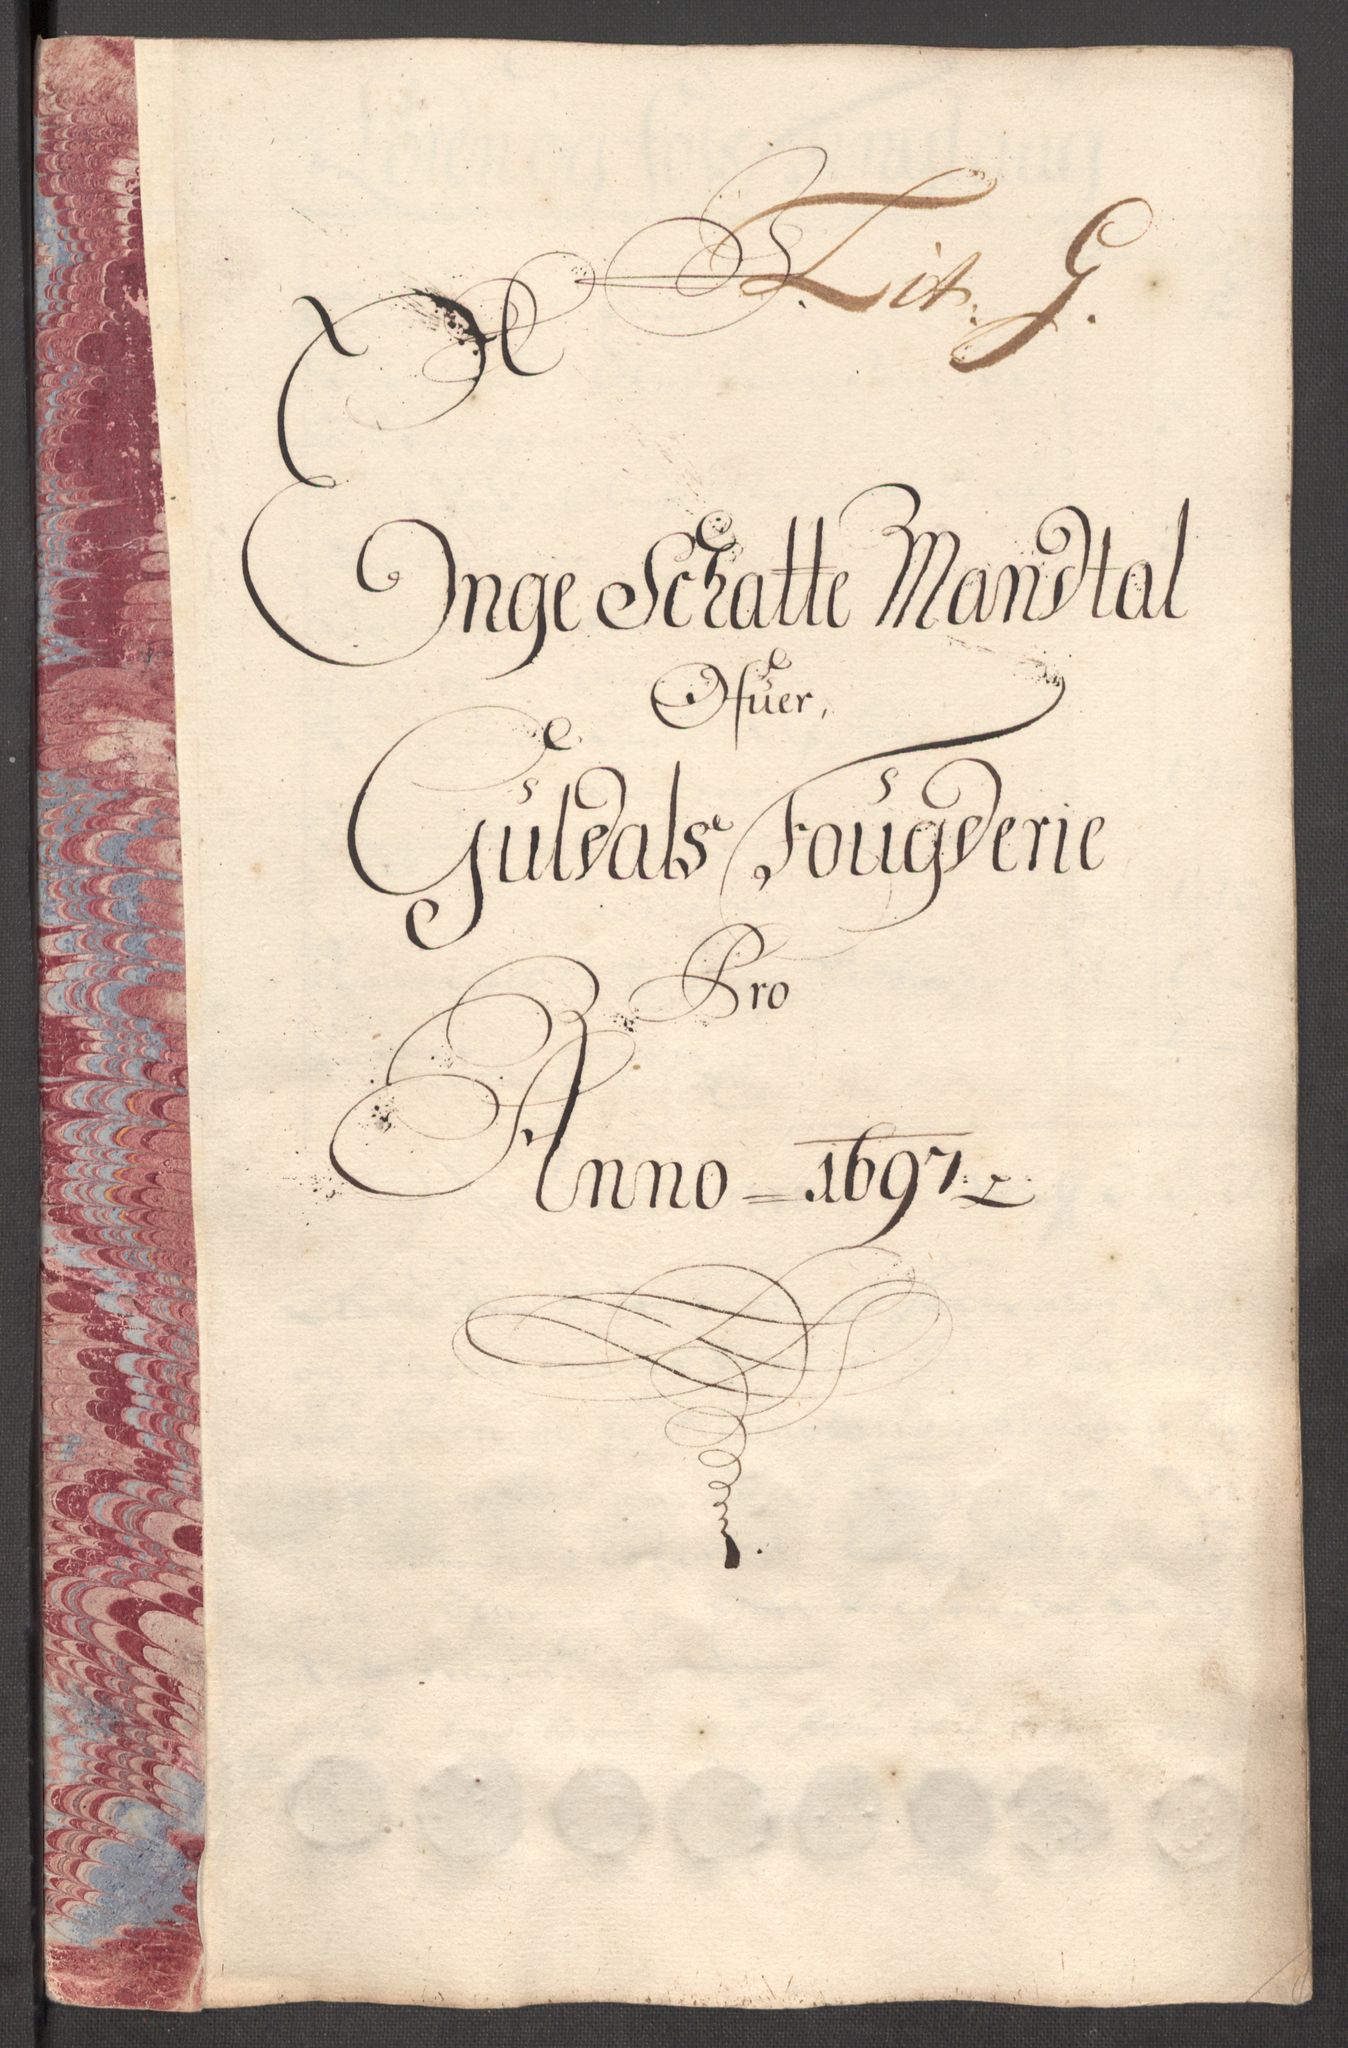 Lit. G.
Enge Schatte Mandtal
Ofuer,
Guldals Fougderie
Pro
Anno 1697